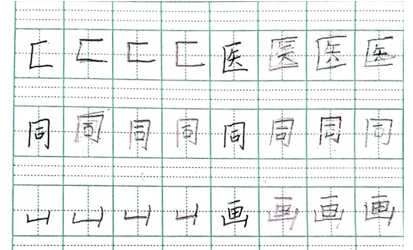 匚匚匚匚医医医医
同同同同同同同同
凵凵凵凵画画画画